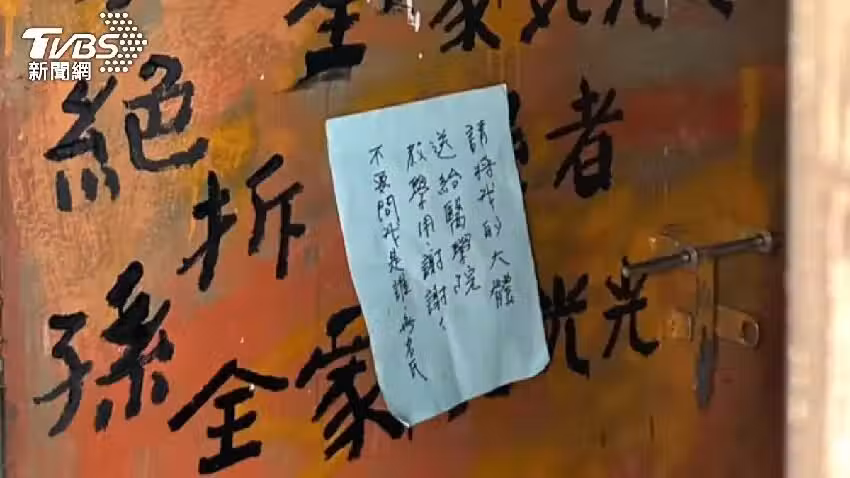 TVBS
新聞網
請将我的大體
送給醫學院
教學用,謝謝!
不要問我是誰!無名氏
者
絕
拆
孫
全家
光光
下